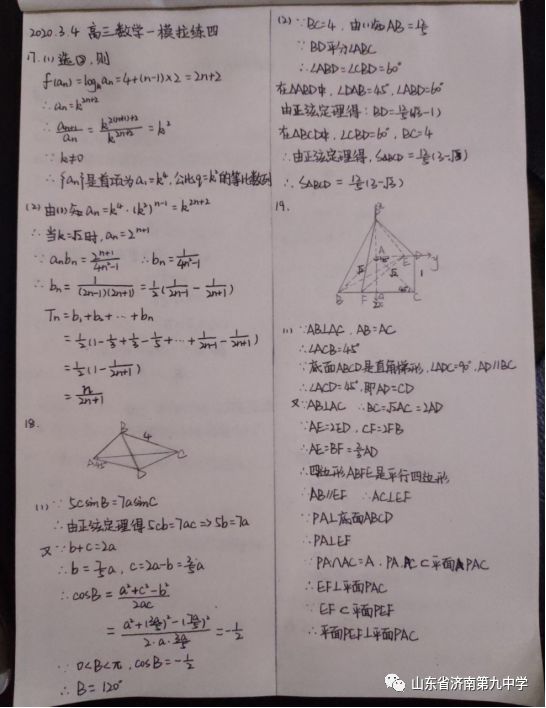 2020.3.4 高三数学一模拉练四
17.(1)选②,则
f(an)=logkan=4+(n-1)×2=2n+2
∴an=k^{2n+2}
∵\frac{an+1}{an}=\frac{k^{2(n+1)+2}}{k^{2n+2}}=k²
∵k≠0
∴{an}是首项为a₁=k⁴,公比q=k²的等比数列
(2)由(1)知an=k⁴·(k²)^{n-1}=k^{2n+2}
∴当k=√2时,an=2^{n+1}
∵anbn=\frac{2^{n+1}}{4n²-1} ∴bn=\frac{1}{4n²-1}
∴bn=\frac{1}{(2n-1)(2n+1)}=\frac{1}{2}(\frac{1}{2n-1}-\frac{1}{2n+1})
Tn=b₁+b₂+…+bn
=\frac{1}{2}(1-\frac{1}{3}+\frac{1}{3}-\frac{1}{5}+…+\frac{1}{2n-1}-\frac{1}{2n+1})
=\frac{1}{2}(1-\frac{1}{2n+1})
=\frac{n}{2n+1}
18.
B
4
A
45°
C
D
(1)∵5csinB=7asinC
∴由正弦定理得5cb=7ac⇒5b=7a
又∵b+c=2a
∴b=\frac{7}{5}a,c=2a-b=\frac{3}{5}a
∴cosB=\frac{a²+c²-b²}{2ac}
=\frac{a²+(\frac{3a}{5})²-(\frac{7a}{5})²}{2·a·\frac{3a}{5}}=-\frac{1}{2}
∵0<B<π,cosB=-\frac{1}{2}
∴B=120°
(2)∵BC=4,由(1)知AB=\frac{12}{5}
∵BD平分∠ABC
∴∠ABD=∠CBD=60°
在△ABD中,∠DAB=45°,∠ABD=60°
由正弦定理得:BD=\frac{12}{5}(√3-1)
在△BCD中,∠CBD=60°,BC=4
∴由正弦定理得,S△BCD=\frac{12}{5}(3-√3)
∴S△BCD=\frac{12}{5}(3-√3)
19.
A
E
y
B
F
C
1
(1)∵AB⊥AC,AB=AC
∴∠ACB=45°
∵底面ABCD是直角梯形,∠ADC=90°,AD∥BC
∴∠ACD=45°,即AD=CD
又∵AB⊥AC ∴BC=√2AC=2AD
∵AE=2ED,CF=2FB
∴AE=BF=\frac{2}{3}AD
∴四边形ABFE是平行四边形
∴AB∥EF ∴AC⊥EF
∵PA⊥底面ABCD
∴PA⊥EF
∵PA∩AC=A,PA,AC⊂平面PAC
∴EF⊥平面PAC
∵EF⊂平面PEF
∴平面PEF⊥平面PAC
山东省济南第九中学